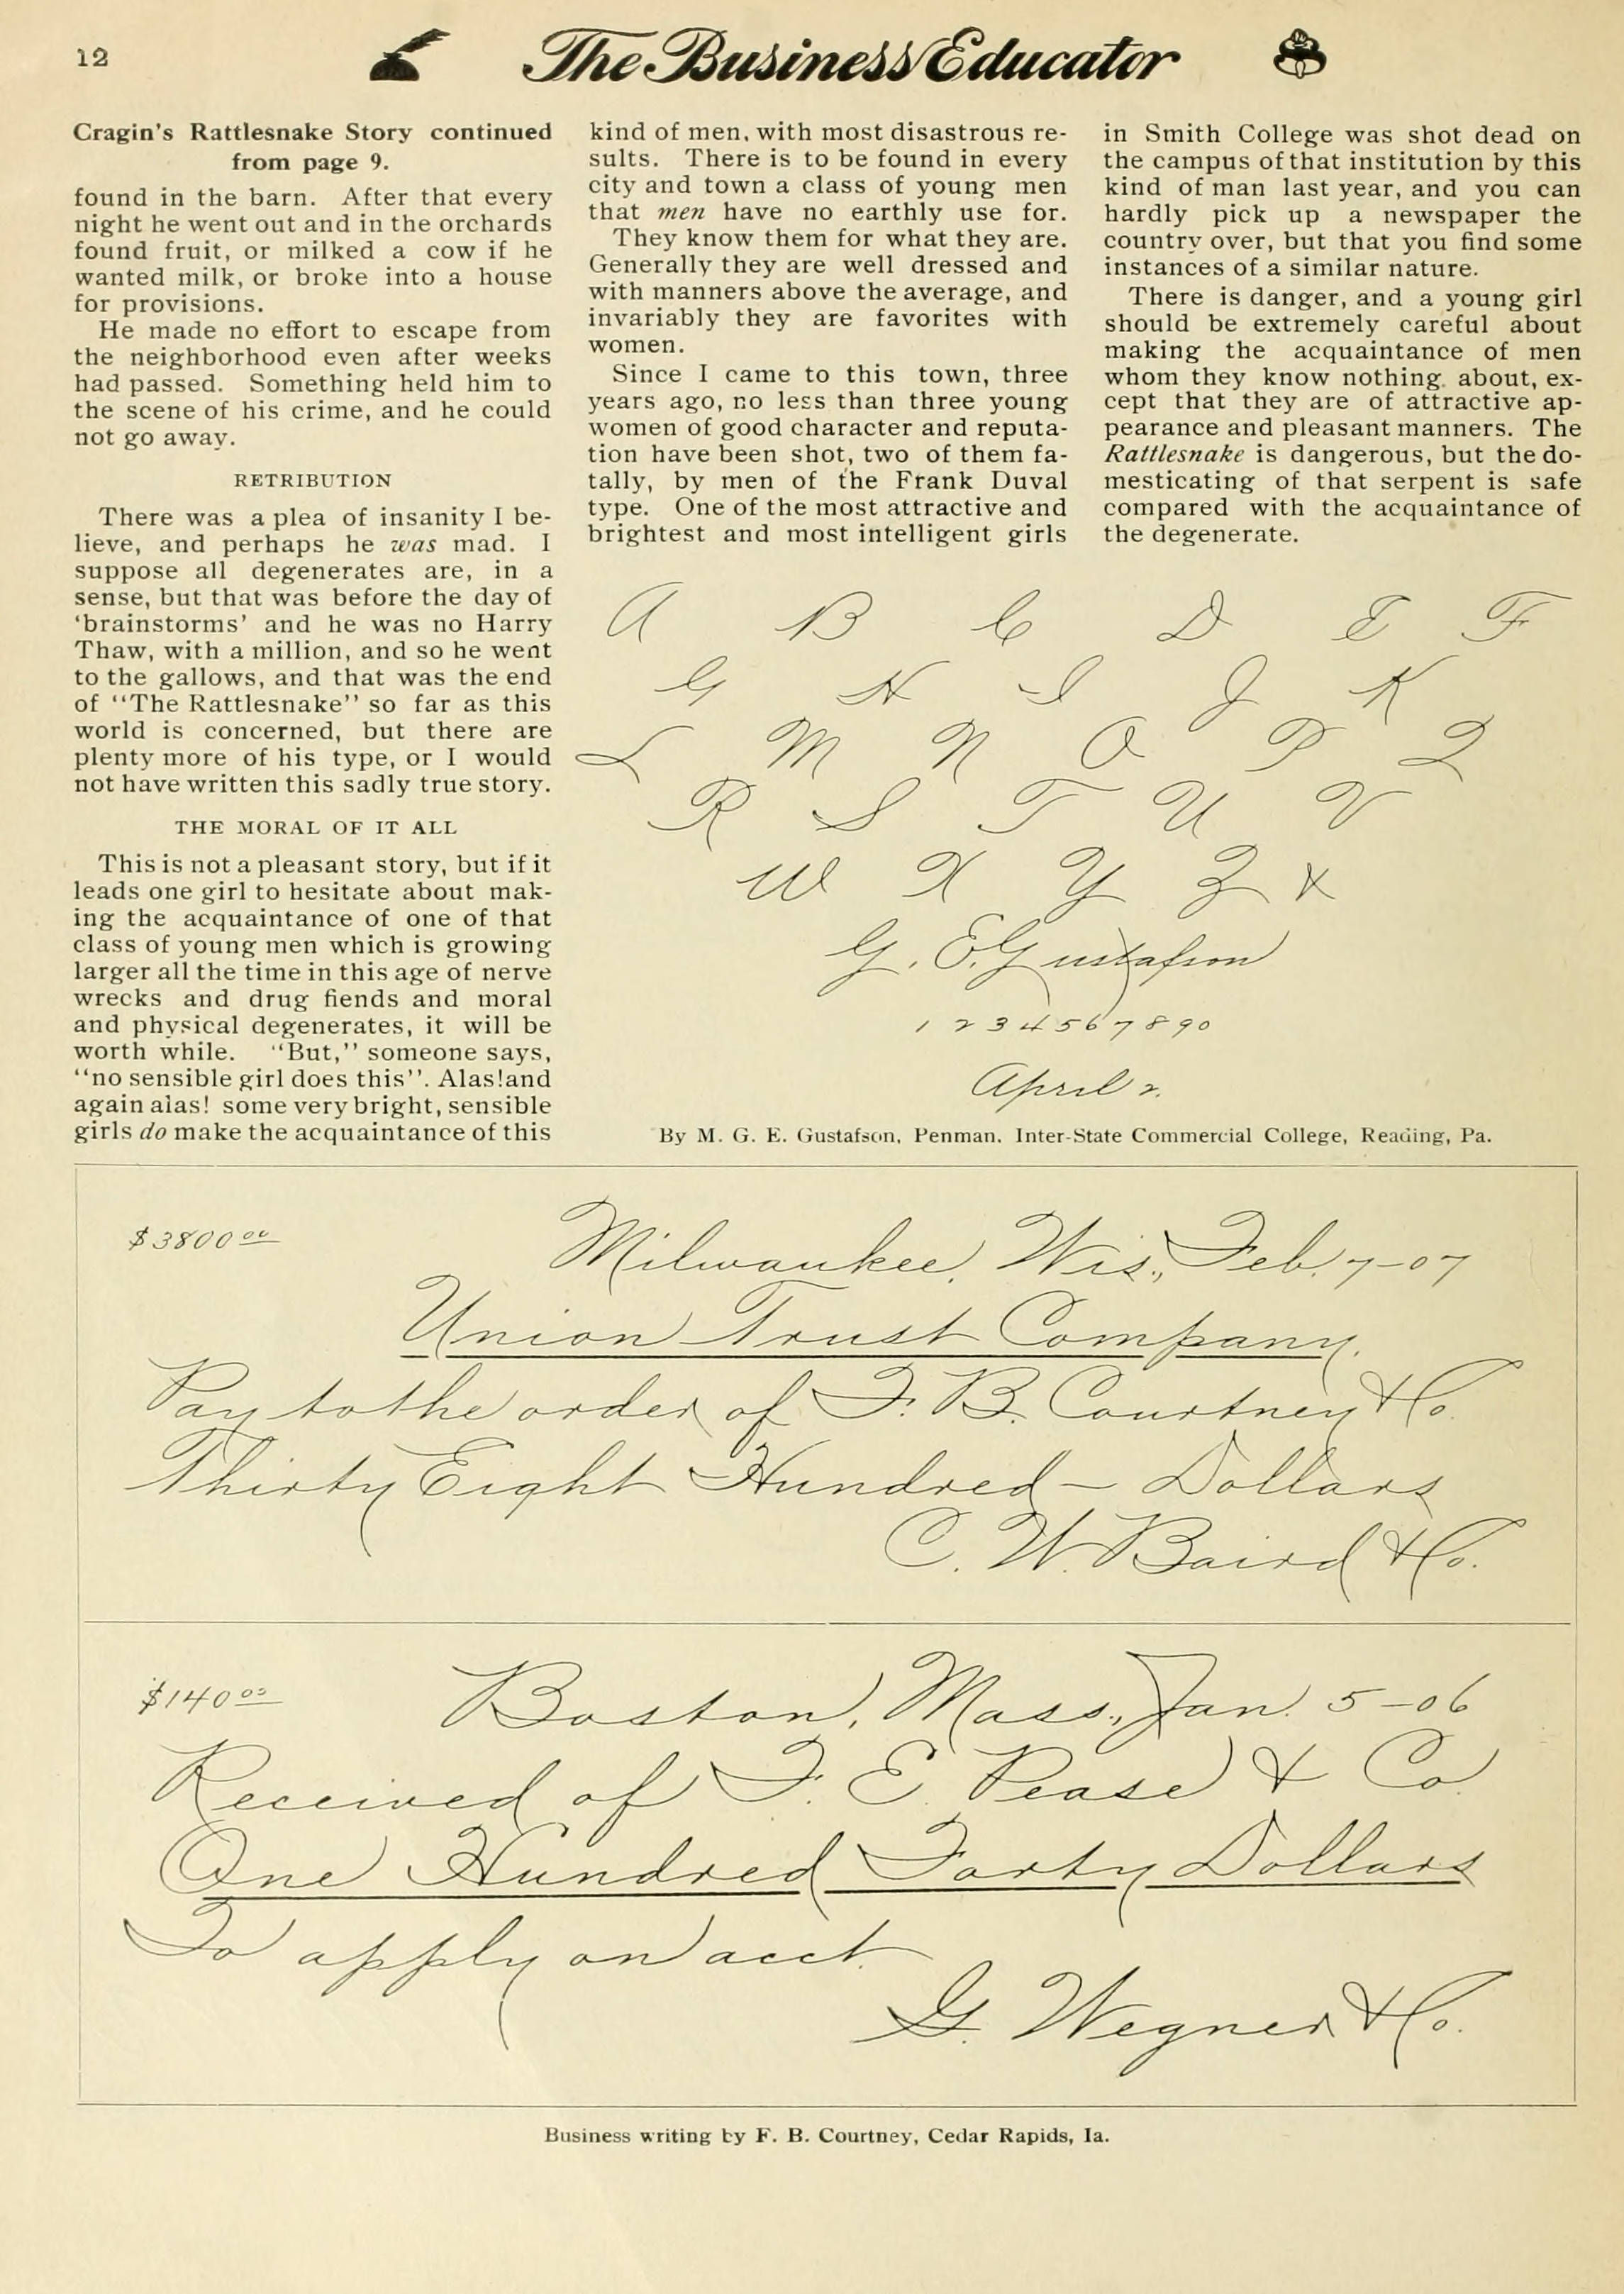 12
The Business Educator
Cragin's Rattlesnake Story continued
from page 9.
found in the barn. After that every
night he went out and in the orchards
found fruit, or milked a cow if he
wanted milk, or broke into a house
for provisions.
He made no effort to escape from
the neighborhood even after weeks
had passed. Something held him to
the scene of his crime, and he could
not go away.
RETRIBUTION
There was a plea of insanity I be-
lieve, and perhaps he was mad. I
suppose all degenerates are, in a
sense, but that was before the day of
'brainstorms' and he was no Harry
Thaw, with a million, and so he went
to the gallows, and that was the end
of "The Rattlesnake" so far as this
world is concerned, but there are
plenty more of his type, or I would
not have written this sadly true story.
THE MORAL OF IT ALL
This is not a pleasant story, but if it
leads one girl to hesitate about mak-
ing the acquaintance of one of that
class of young men which is growing
larger all the time in this age of nerve
wrecks and drug fiends and moral
and physical degenerates, it will be
worth while. "But," someone says,
"no sensible girl does this". Alas! and
again alas! some very bright, sensible
girls do make the acquaintance of this
kind of men, with most disastrous re-
sults. There is to be found in every
city and town a class of young men
that men have no earthly use for.
They know them for what they are.
Generally they are well dressed and
with manners above the average, and
invariably they are favorites with
women.
Since I came to this town, three
years ago, no less than three young
women of good character and reputa-
tion have been shot, two of them fa-
tally, by men of the Frank Duval
type. One of the most attractive and
brightest and most intelligent girls
in Smith College was shot dead on
the campus of that institution by this
kind of man last year, and you can
hardly pick up a newspaper the
country over, but that you find some
instances of a similar nature.
There is danger, and a young girl
should be extremely careful about
making the acquaintance of men
whom they know nothing about, ex-
cept that they are of attractive ap-
pearance and pleasant manners. The
Rattlesnake is dangerous, but the do-
mesticating of that serpent is safe
compared with the acquaintance of
the degenerate.
A B C D E F
G H I J K
L M N O P Q
R S T U V
W X Y Z &
G. E. Gustafson
1 2 3 4 5 6 7 8 9 0
April 2.
By M. G. E. Gustafson, Penman. Inter-State Commercial College, Reading, Pa.
$3800 00 Milwaukee, Wis., Feb. 7-07
Union Trust Company.
Pay to the order of F. B. Courtney & Co.
Thirty Eight Hundred — Dollars
C. W. Baird & Co.
$140 00 Boston, Mass., Jan. 5-06
Received of F. E. Pease & Co
One Hundred Forty Dollars
To apply on acct.
G. Wegner & Co.
Business writing by F. B. Courtney, Cedar Rapids, Ia.